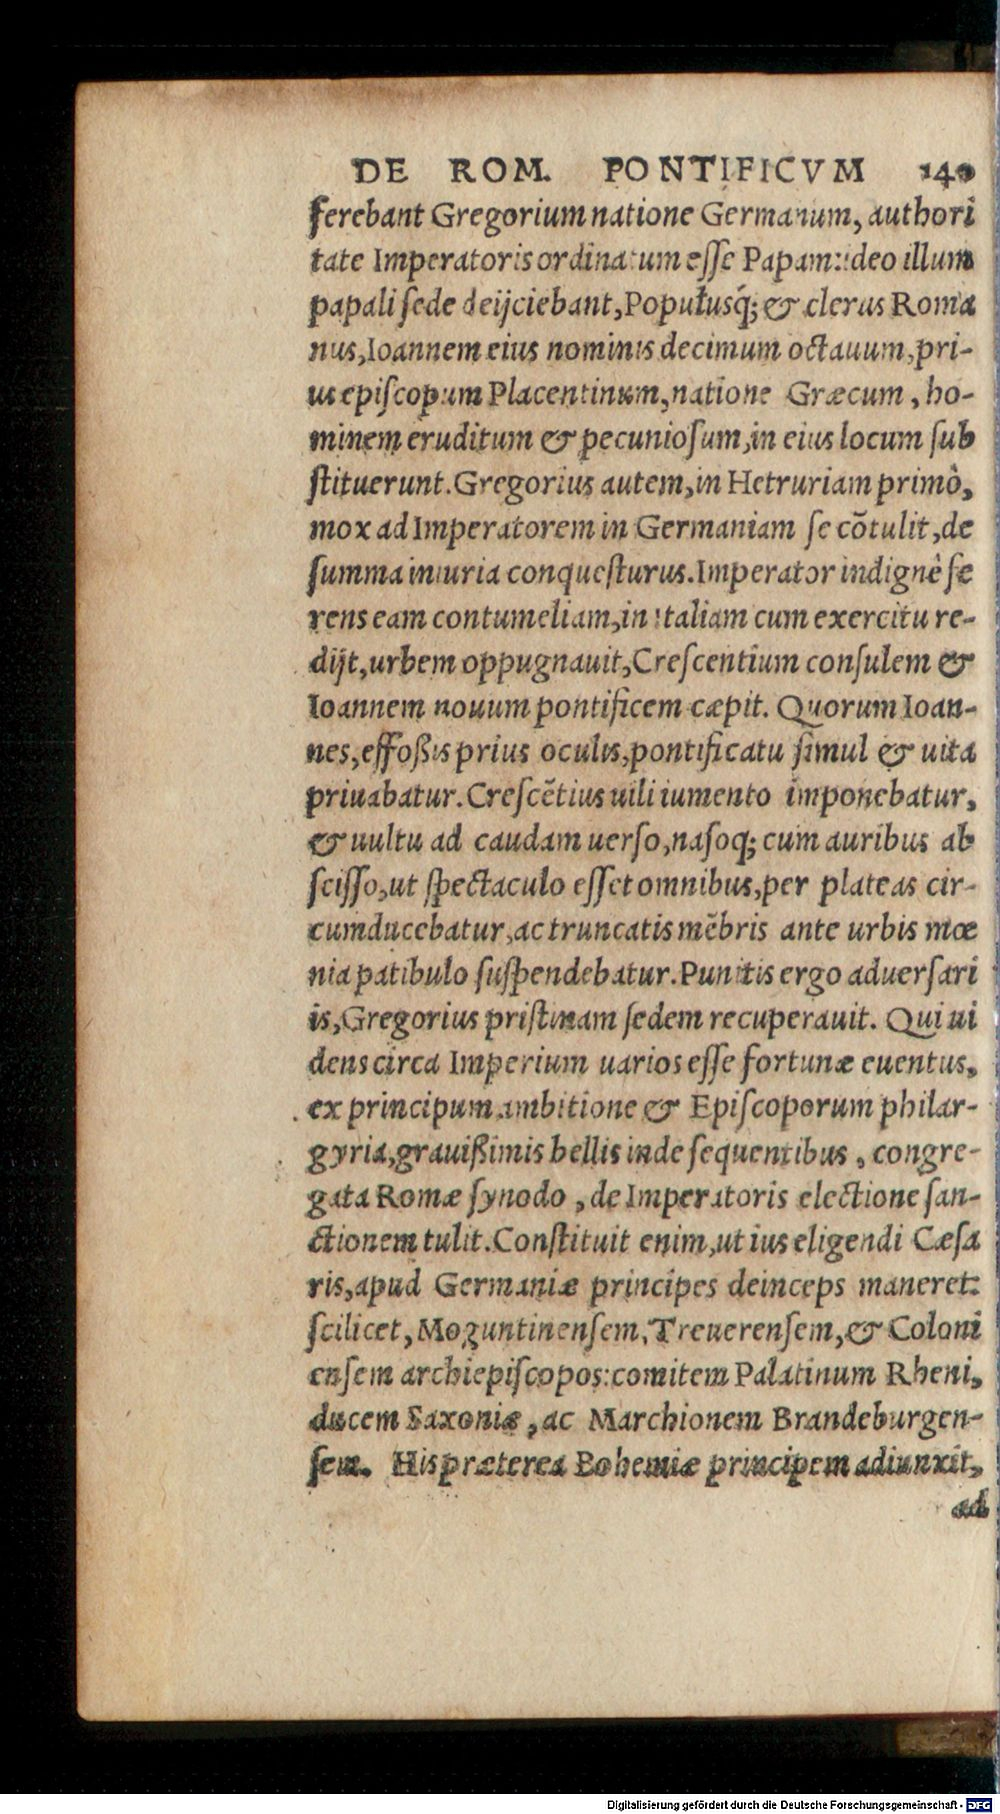 DE ROM. PONTIFICVM 140
ferebant Gregorium natione Germanum, authori
tate Imperatoris ordinatum eſſe Papam: ideo illum
papali ſede deijciebant, Populusq́; & clerus Roma
nus, Ioannem eius nominis decimum octauum, pri-
us epiſcopum Placentinum, natione Græcum, ho-
minem eruditum & pecunioſum, in eius locum ſub
ſtituerunt. Gregorius autem, in Hetruriam primò,
mox ad Imperatorem in Germaniam ſe cõtulit, de
ſumma iniuria conqueſturus. Imperator indignè fe
rens eam contumeliam, in Italiam cum exercitu re-
dijt, urbem oppugnauit, Creſcentium conſulem &
Ioannem nouum pontificem cæpit. Quorum Ioan-
nes, effoßis prius oculis, pontificatu ſimul & uita
priuabatur. Creſcẽtius uili iumento imponebatur,
& uultu ad caudam uerſo, naſoq; cum auribus ab
ſciſſo, ut ſpectaculo eſſet omnibus, per plateas cir-
cumducebatur, ac truncatis mẽbris ante urbis mœ
nia patibulo ſuſpendebatur. Punitis ergo aduerſari
is, Gregorius priſtinam ſedem recuperauit. Qui ui
dens circa Imperium uarios eſſe fortunæ euentus,
ex principum ambitione & Epiſcoporum philar-
gyria, grauißimis bellis inde ſequentibus, congre-
gata Romæ ſynodo, de Imperatoris electione ſan-
ctionem tulit. Conſtituit enim, ut ius eligendi Cæſa
ris, apud Germaniæ principes deinceps maneret:
ſcilicet, Moguntinenſem, Treuerenſem, & Coloni
enſem archiepiſcopos: comitem Palatinum Rheni,
ducem Saxoniæ, ac Marchionem Brandeburgen-
ſem. His præterea Bohemiæ principem adiunxit,
ad
Digitalisierung gefördert durch die Deutsche Forschungsgemeinschaft - DFG